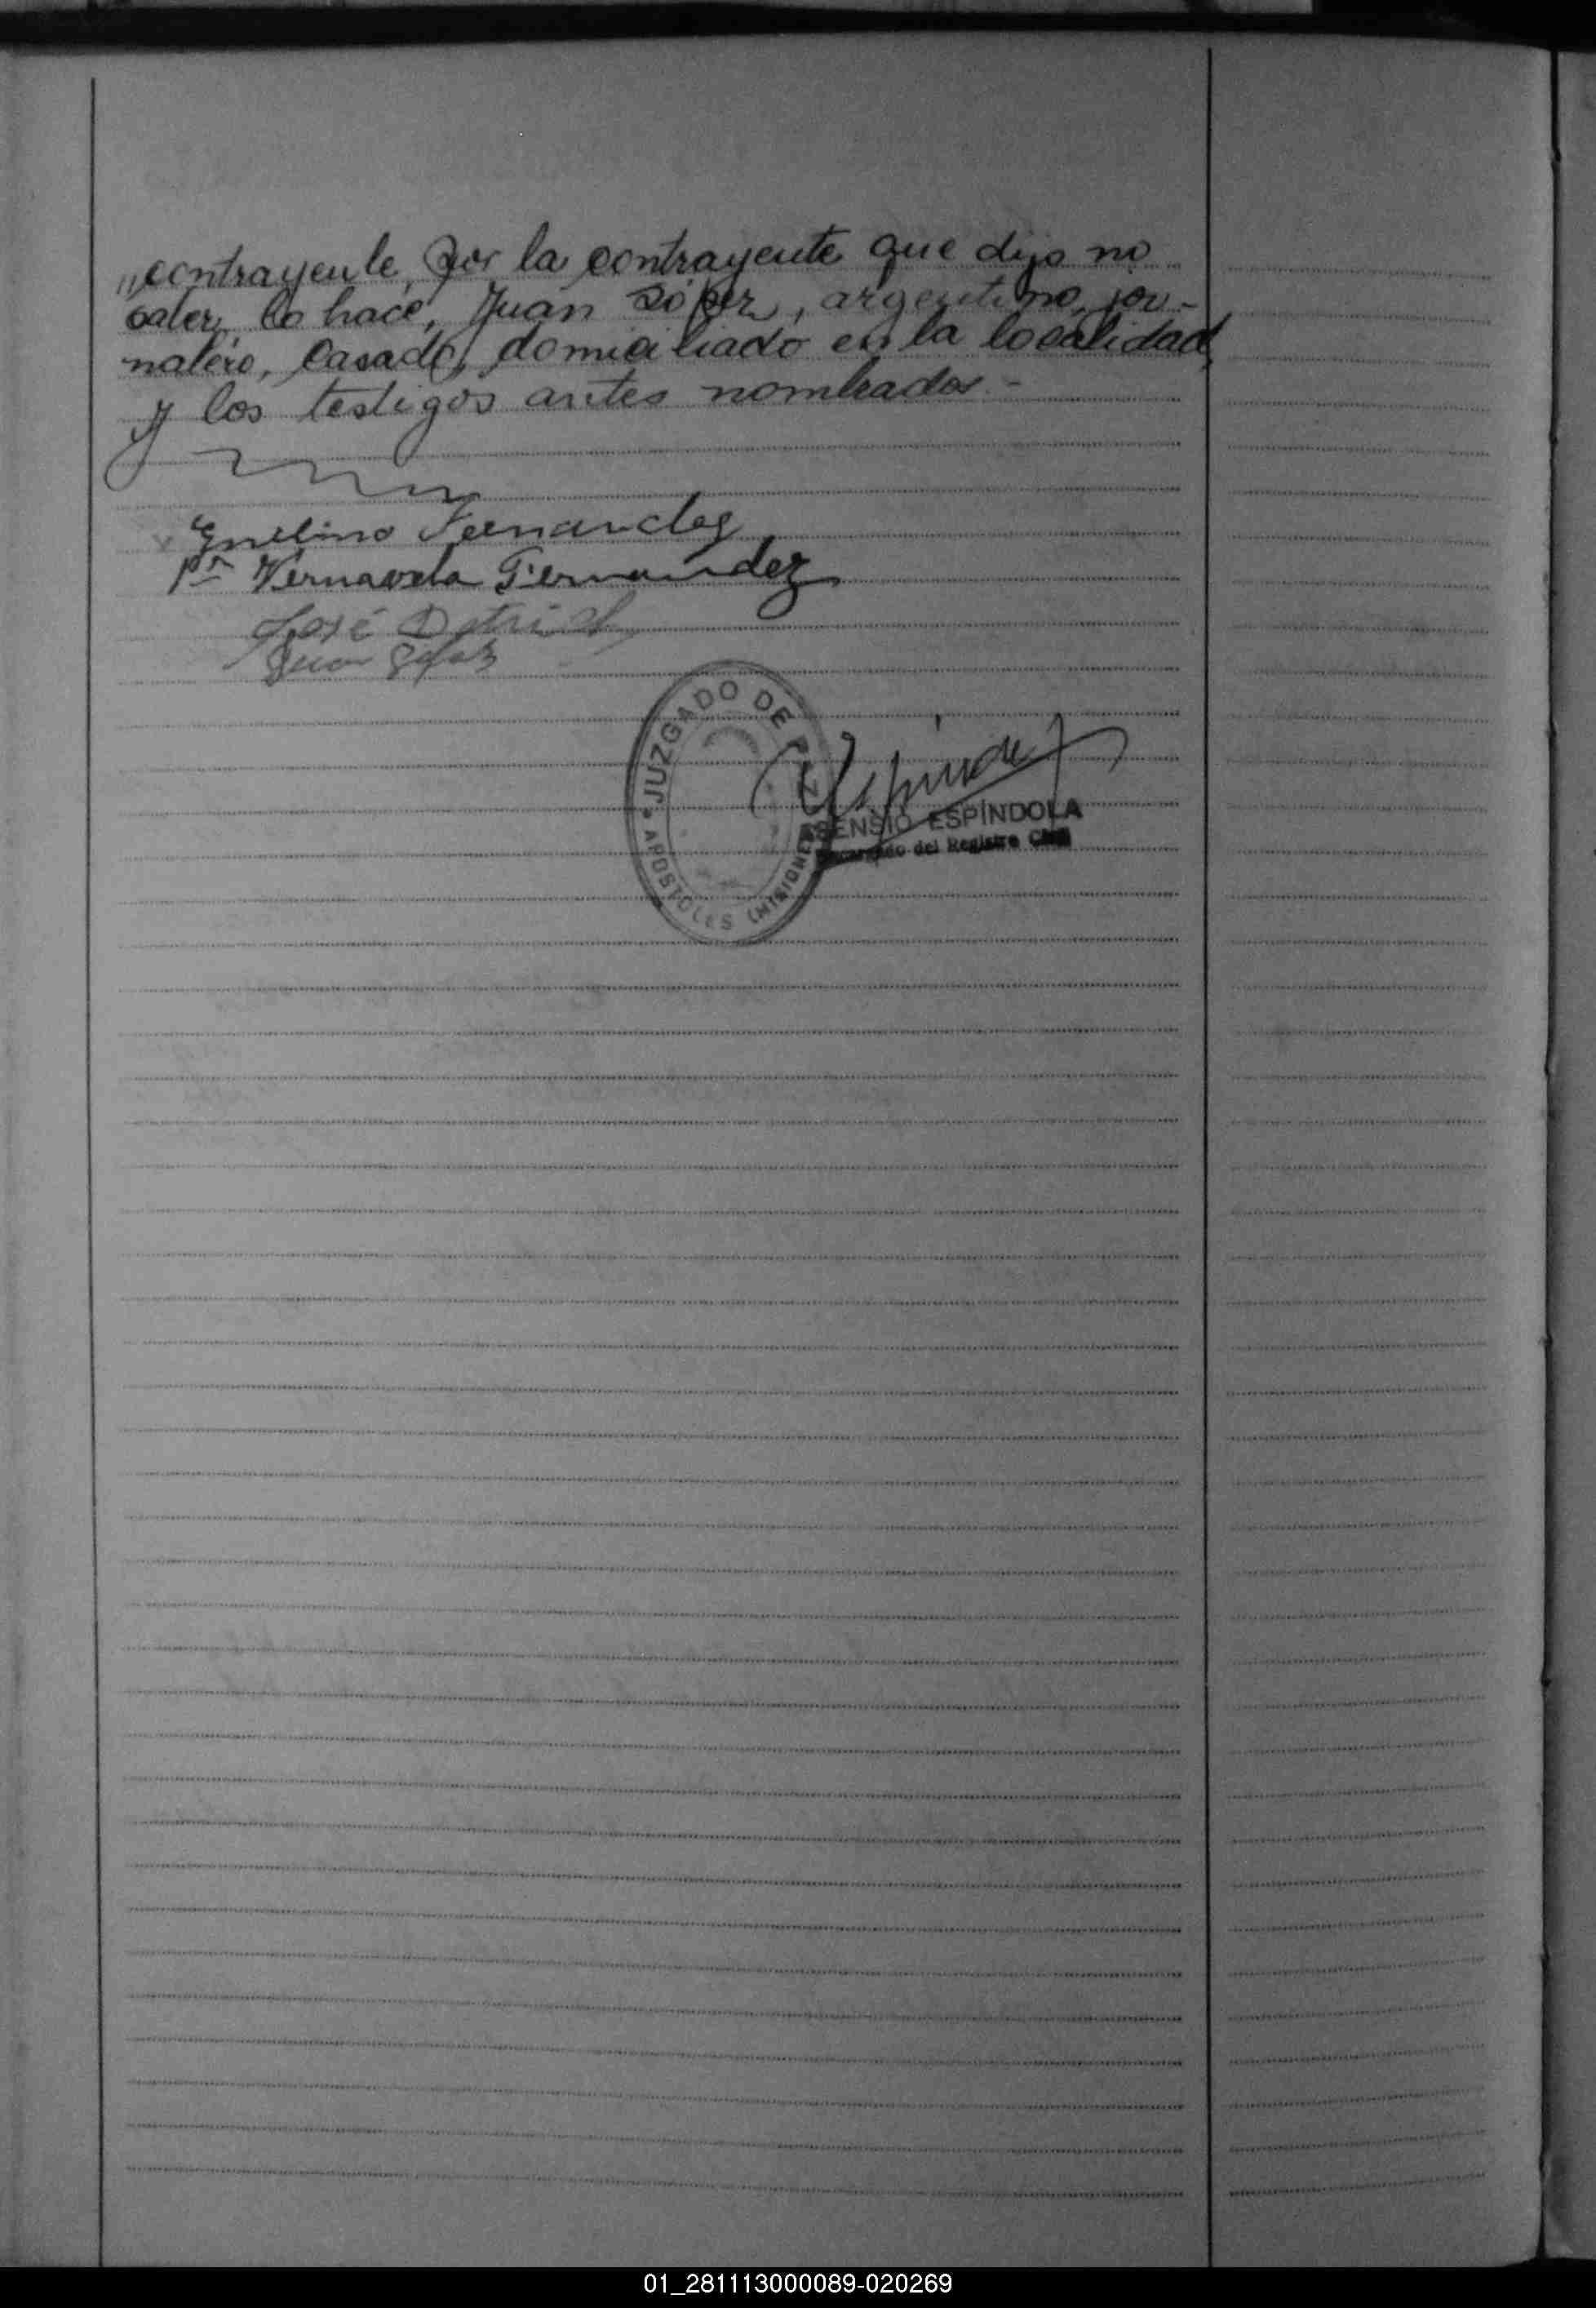 "contrayente, por la contrayente que dijo no
saber, lo hace, Juan López, argentino, jor-
nalero, casado, domiciliado en la localidad,
y los testigos antes nombrados.-
Fernandez
pr Fernandez
José
Juan
JUZGADO DE PAZ
APOSTOLES (MISIONES)
ASENSIO ESPÍNDOLA
Encargado del Registro Civil
01_281113000089-020269